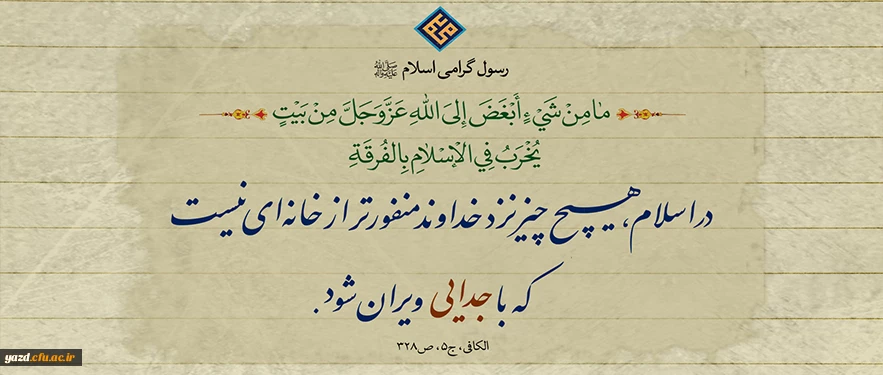 رسول گرامی اسلام ﷺ
مٰا مِنْ شَيْءٍ أَبْغَضَ إِلَىَ اللّٰهِ عَزَّوَجَلَّ مِنْ بَيْتٍ
يُخْرَبُ فِي الْإِسْلٰامِ بِالْفُرقَةِ
در اسلام، هیچ چیز نزد خداوند منفورتر از خانه‌ای نیست
که با جدایی ویران شود.
الکافی، ج۵، ص۳۲۸
yazd.cfu.ac.ir